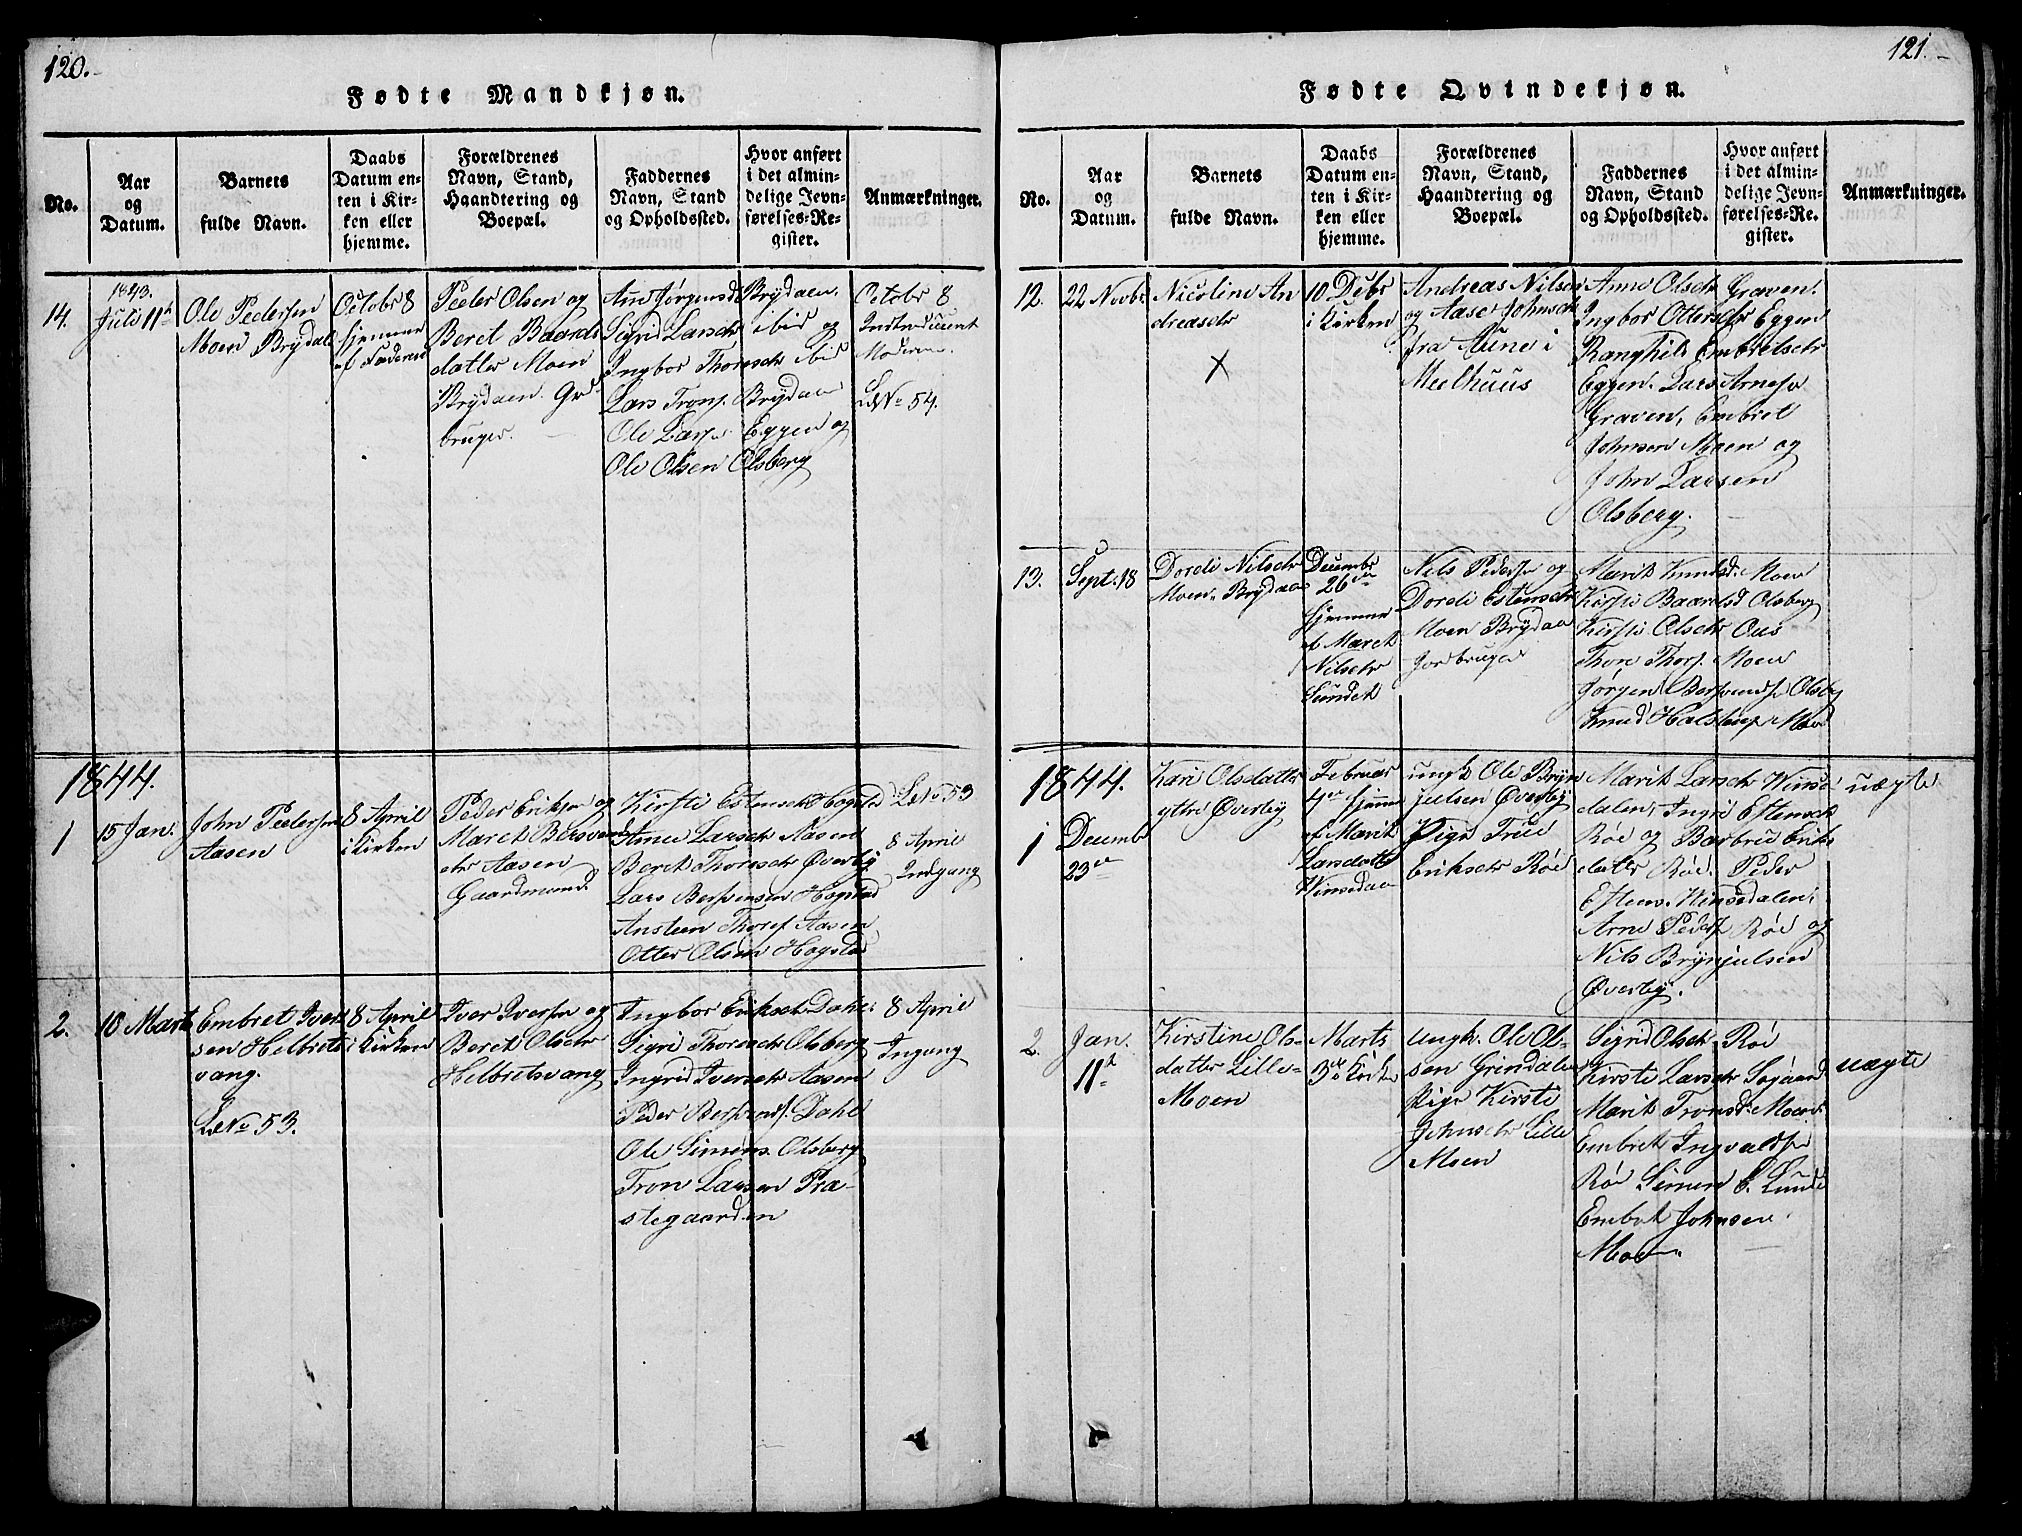 120.
Fødte Mandkjøn.
No.
Aar
og
Datum.
Barnets
fulde Navn.
Daabs
Datum en-
ten i Kir-
ken eller
hjemme.
Forældrenes
Navn, Stand,
Haandtering og
Boepæl.
Faddernes
Navn, Stand
og Opholdssted.
Hvor anført
i det almin-
delige Jevn-
førelses-Re-
gister.
Anmærkninger.
14.
1843.
Juli 11te
Ole Pedersen
Moen Brydal
Octobr 8
hjemme
af Faderen
Peder Olsen og
Beret Baards
datter Moen
Brydaen. Grd
bruger.
Ane Jørgensdr Brydaen.
Sigrid Larsdr ibid og
Ingbor Thoresdr ibid
Lars Trons. Brydaen
Ole Larss. Eggen og
Ole Olsen Olsberg
Octobr 8
Introduceret
Moderen.
LNo 54.
1844.
1
15 Jan.
John Pedersen
Aasen
8 April
i Kirken
Peder Eriksen og
Maret Bersvend
dtr Aasen
Gaardmand
Kirsti Estensdr Hogstad
Anne Larsdr Aasen
Beret Thoresdr Øverby
Lars Bersvensen Hogstad
Ansteen Thores. Aasen
Otter Olsen Hogstad
LNo 53
8 April
Indgang
2.
10 Marts
Embret Ivers
sen Helbrets
vang.
LNo 53.
8 April
i Kirken
Iver Iversen og
Beret Olsdr
Helbretsvang
Ingbor Eriksdr Dahl
Sigri Thoresdr Olsberg
Ingrid Iversdr Aasen
Peder Bersvends. Dahl
Ole Simens. Olsberg
Tron Larsen Præ-
stegaarden
8 April
Ingang
121.
Fødte Qvindekjøn.
No.
Aar
og
Datum.
Barnets
fulde Navn.
Daabs
Datum en-
ten i Kir-
ken eller
hjemme.
Forældrenes
Navn, Stand,
Haandtering og
Boepæl.
Faddernes
Navn, Stand
og Opholdssted.
Hvor anført
i det almin-
delige Jevn-
førelses-Re-
gister.
Anmærkninger.
12.
22 Novbr
Nicoline An
dreasdr
X
10 Debr
i Kirken
Andreas Nilsen
og Aase Johnsdr
fra Aune i
Meelhuus
Anne Olsdr Graven.
Ingbor Ottersdr Eggen
Ranghild Embretsdr
Eggen. Lars Arnesen
Graven, Embret
Johnsen Moen og
John Larsen
Olsberg.
13.
Sept. 18
Dordi Nilsdr
Moen Brydaen
Decembr
26de
hjemme
af Maret
Nilsdr
Sundet
Nils Pedersen og
Dordi Estensdr
Moen Brydaen
Jordbruger
Marit Knudsd. Moen
Kirsti Baardsd Olsberg
Kirsti Olsdr Ous
Thore Thors. Moen
Jørgen Bersvends. Olsbg
Knud Halstens. Moen
1844.
1
Decembr
23de
Kari Olsdatter
ytre Øverby
Februar
4de hjemme
af Marit
Larsdatter
Vinsedaen
ungk Ole Bryn
julsen Øverby
Pige Trui
Eriksdr Röe
Marit Larsdr Vinse
dalen, Ingri Estensdr
Röe og Barbru Eriks
datter Röe. Peder
Estens. Vinsedalen,
Arne Peders. Röe og
Nils Brynjulsen
Øverby.
uægte
2.
Jan.
11te
Kirstine Ols-
datter Lille-
Moen
Marts
3de Kirke
Ungk. Ole Ol-
sen Grindalen
Pige Kirsti
Johnsdr Lille
Moen
Sigrid Olsdr Röe
Kirsti Larsdr Søgaard
Marit Tronsd. Moen
Embret Ingvaldsen
Röe Simen E. Lunde
Embret Johnsen
Moen
uægte